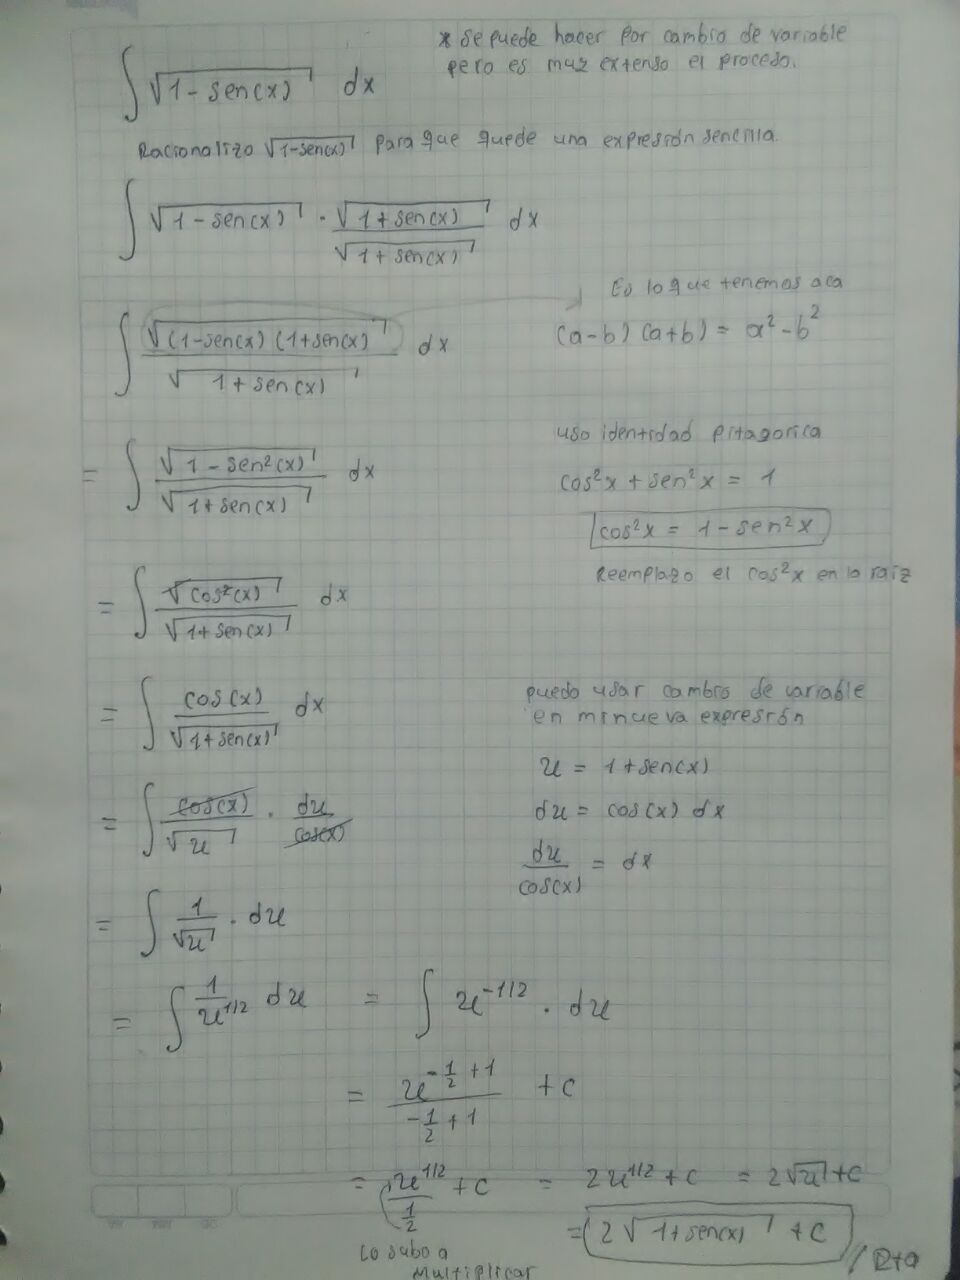 * se puede hacer por cambio de variable
pero es muy extenso el proceso.
∫ √(1 - sen(x)) dx
Racionalizo √(1-sen(x)) para que quede una expresión sencilla.
∫ √(1 - sen(x)) · √(1 + sen(x)) / √(1 + sen(x)) dx
Es lo que tenemos aca
∫ √((1-sen(x)) (1+sen(x))) / √(1 + sen(x)) dx
(a-b) (a+b) = a² - b²
uso identidad pitagorica
= ∫ √(1 - sen²(x)) / √(1+sen(x)) dx
cos²x + sen²x = 1
cos²x = 1 - sen²x
Reemplazo el cos²x en la raiz
= ∫ √(cos²(x)) / √(1+sen(x)) dx
= ∫ cos(x) / √(1+sen(x)) dx
puedo usar cambio de variable
en mi nueva expresión
u = 1+sen(x)
= ∫ cos(x) / √u · du / cos(x)
du = cos(x) dx
du / cos(x) = dx
= ∫ 1/√u · du
= ∫ 1/u^1/2 du = ∫ u^-1/2 · du
= u^(-1/2 + 1) / (-1/2 + 1) + c
= u^1/2 / (1/2) + c = 2u^1/2 + c = 2√u + c
= 2√(1+sen(x)) + c // Rta
Lo subo a
multiplicar